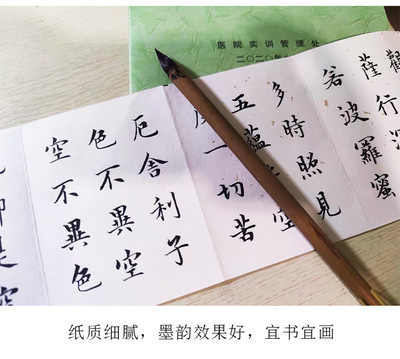 医院实训管理处
二〇二〇年
觀
薩行深
若波羅蜜
多時照見
五蘊空
度一切苦
厄舍利子
色不異空
空不異色
纸质细腻，墨韵效果好，宜书宜画